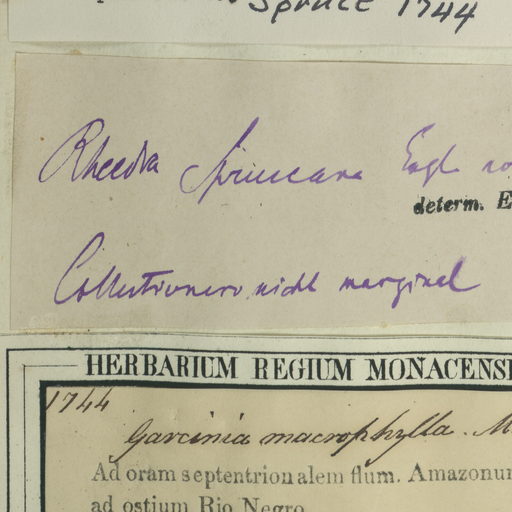 Spruce 1744
Rheedia Spruceana Engl.
determ. E
Collectivnerv nicht marginal
HERBARIUM REGIUM MONACENSI
1744
Garcinia macrophylla. M
Ad oram septentrionalem flum. Amazonum
ad ostium Rio Negro